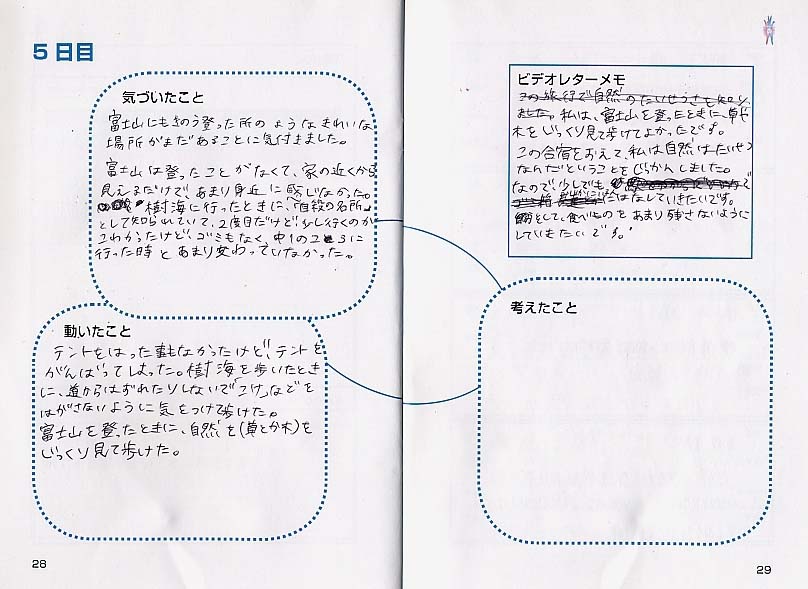 5日目
気づいたこと
富士山にもきのう登った所のようなきれいな
場所がまだあることに気付きました。
富士山は登ったことがなくて、家の近くから
見えるだけで、あまり身近に感じなかった。
樹海に行ったときに、「自殺の名所」
として知られていて、2度目だけど少し行くのが
こわかったけど、ゴミもなく、中1のころに
行った時とあまり変わっていなかった。
動いたこと
テントをはった事もなかったけど、テントを
がんばってしまった。樹海を歩いたとき
に、道からはずれたりしないで「こけ」などを
はがさないように気をつけて歩けた。
富士山を登ったときに、自然を(草とか木)を
じっくり見て歩けた。
28
ビデオレターメモ
この旅行で自然のたいせつさを知り
ました。私は、富士山を登ったときに、草や
木をじっくり見て歩けてよかったです。
この合宿をおえて、私は自然はたいせつ
なんだということをじっかんしました。
なので、少しでも
にはなしていきたいです。
そして、食べものをあまり残さないように
していきたいです。
考えたこと
29